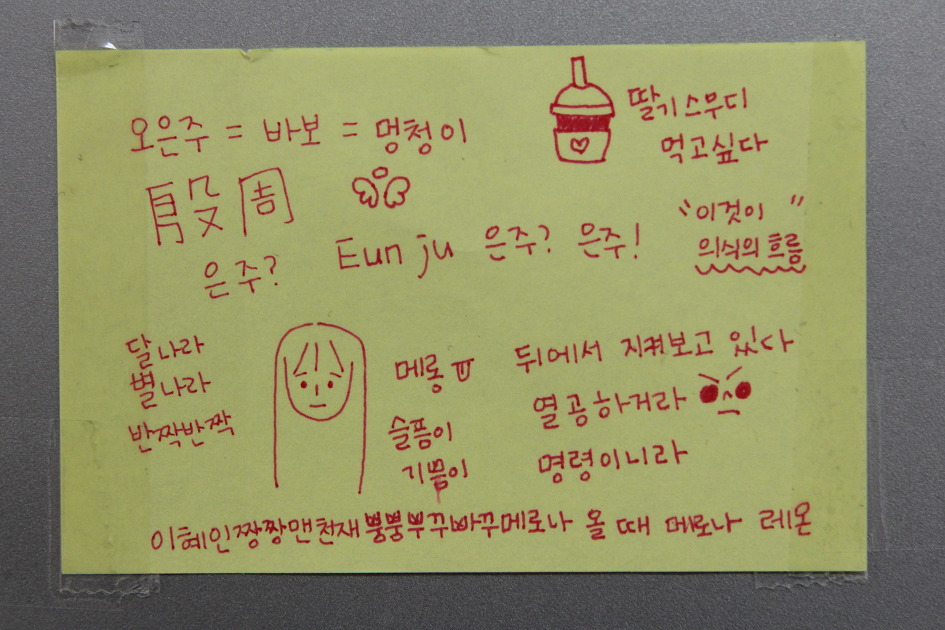 오은주 = 바보 = 멍청이
딸기스무디
먹고싶다
殷周
은주?
Eunju 은주? 은주!
"이것이"
의식의 흐름
달나라
별나라
반짝반짝
메롱
슬픔이
기쁨이
뒤에서 지켜보고 있다
열공하거라
명령이니라
이혜인짱짱맨천재뿡뿡뿌꾸빠꾸메로나 올 때 메로나 레몬